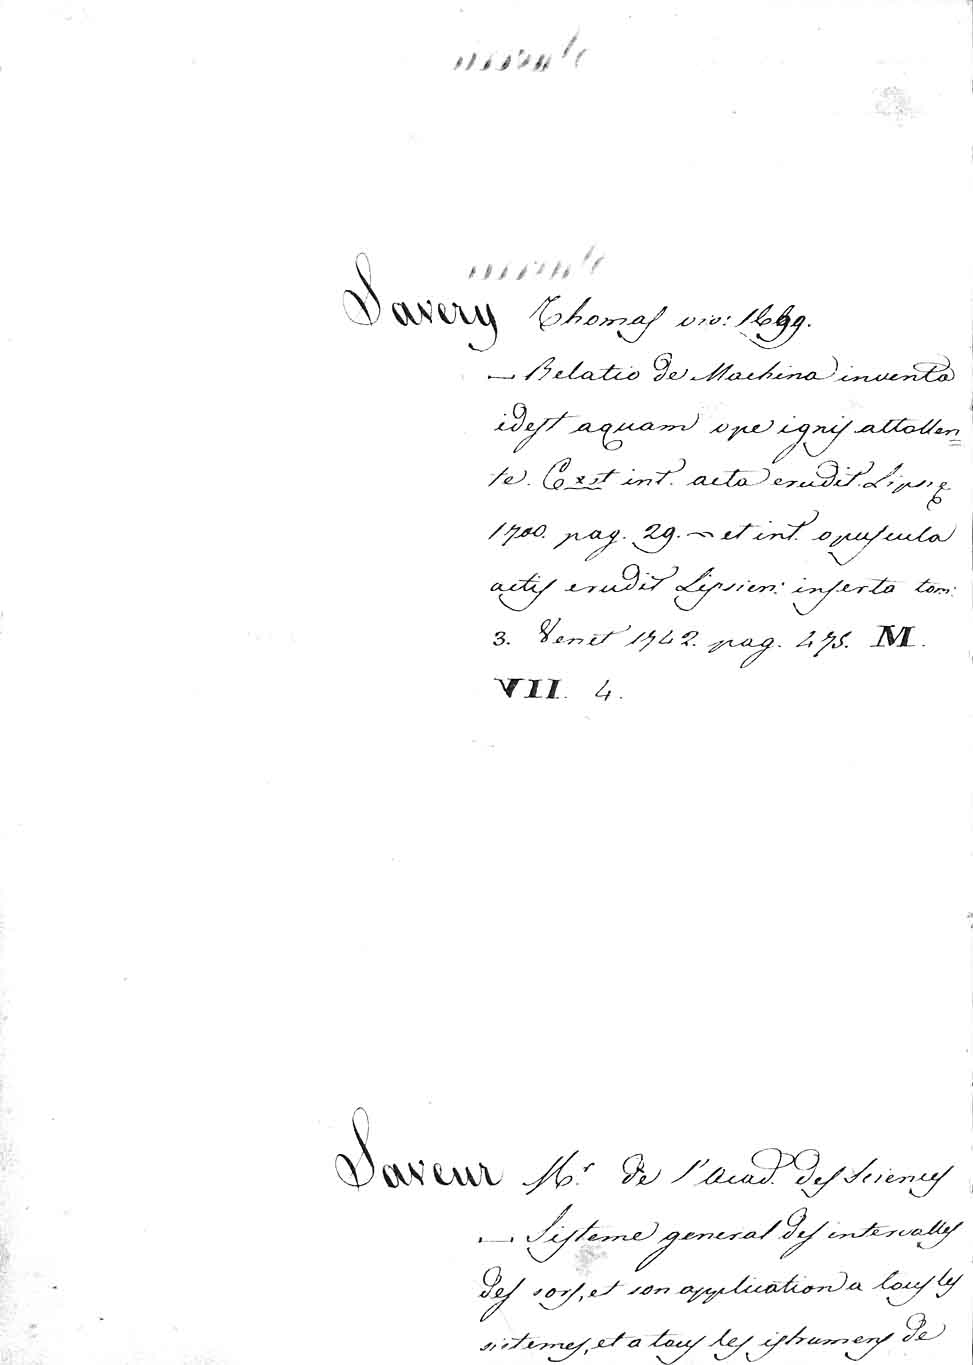 Savery Thomas viv: 1699.
— Relatio de Machina inventa
idest aquam ope ignis attollen=
te. Exst int. acta erudit. Lipsię
1700. pag. 29. ~ et int. opuscula
actis erudit Lipsien: inserta tom:
3. Venet 1742. pag. 475. M.
VII. 4.
Saveur Mr. de l'Acad. des Sciences
— Sisteme general des intervalles
des sons, et son application a tous les
sistemes, et a tous les istrumens de